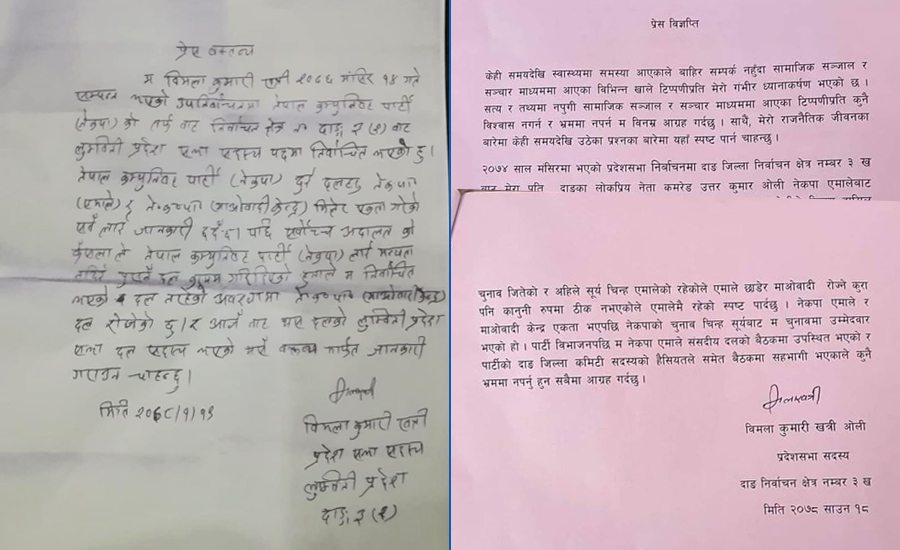 प्रेस वक्तव्य
म विमला कुमारी खत्री २०७६ मंसिर १४ गते
सम्पन्न भएको उपनिर्वाचनमा नेपाल कम्युनिष्ट पार्टी
(नेकपा) को तर्फ बाट निर्वाचन क्षेत्र नं दाङ ३ (ख) बाट
लुम्बिनी प्रदेश सभा सदस्य पदमा निर्वाचित भएको हुँ।
नेपाल कम्युनिष्ट पार्टी (नेकपा) दुई दलहरु नेकपा
(एमाले) र ने.क.पा (माओवादी केन्द्र) मिलेर एकता गरेको
सबै लाई जानकारी
सर्वोच्च अदालत को
फैसला ले नेपाल कम्युनिष्ट पार्टी (नेकपा) लाई मान्यता
नदिई
दल कायम गरिदिएको हुनाले म निर्वाचित
भएको दल नरहेको अवस्थामा ने.क.पा (माओवादी केन्द्र)
दल रोजेको छु। र आजै बाट यस दलको लुम्बिनी प्रदेश
सभा दल सदस्य भएको यसै वक्तव्य मार्फत जानकारी
गराउन चाहन्छु।
विमला कुमारी खत्री
प्रदेश सभा सदस्य
लुम्बिनी प्रदेश
दाङ, ३ (ख)
प्रेस विज्ञप्ति
केही समयदेखि स्वास्थ्यमा समस्या आएकाले बाहिर सम्पर्क नहुँदा सामाजिक सञ्जाल र
सञ्चार माध्यममा आएका विभिन्न खाले टिपणीप्रति मेरो गंभीर ध्यानाकर्षण भएको छ ।
सत्य र तथ्यमा नपुगी सामाजिक सञ्जाल र सञ्चार माध्यममा आएका टिपणीप्रति कुनै
विश्वास नगर्न र भ्रममा नपर्न म विनम्र आग्रह गर्दछु । साथै, मेरो राजनैतिक जीवनका
बारेमा केही समयदेखि उठेका प्रश्नका बारेमा यहाँ स्पष्ट पार्न चाहन्छु ।
२०७४ साल मंसिरमा भएको प्रदेशसभा निर्वाचनमा दाङ जिल्ला निर्वाचन क्षेत्र नम्बर ३ ख
बाट मेरा पति दाङका लोकप्रिय नेता कमरेड उत्तर कुमार ओली नेकपा एमालेबाट
चुनाव जितेको र अहिले सूर्य चिन्ह एमालेको रहेकोले एमाले छाडेर माओवादी रोज्ने कुरा
पनि कानुनी रुपमा ठीक नभएकोले एमालेमै रहेको स्पष्ट पार्दछु । नेकपा एमाले र
माओवादी केन्द्र एकता भएपछि नेकपाको चुनाव चिन्ह सूर्यबाट म चुनावमा उम्मेदवार
भएको हो । पार्टी विभाजनपछि म नेकपा एमाले संसदीय दलको बैठकमा उपस्थित भएको र
पार्टीको दाङ जिल्ला कमिटी सदस्यको हैसियतले समेत बैठकमा सहभागी भएकाले कुनै
भ्रममा नपर्नु हुन सबैमा आग्रह गर्दछु ।
विमला कुमारी खत्री ओली
प्रदेशसभा सदस्य
दाङ निर्वाचन क्षेत्र नम्बर ३ ख
मिति २०७८ साउन १८